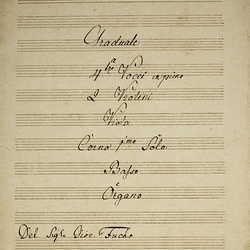 Graduale
4tro Vocci in pieno
2 Violini
Viola
Corno 1mo Solo
Basso
e
Organo
Del Sigl: Giov. Fuchs